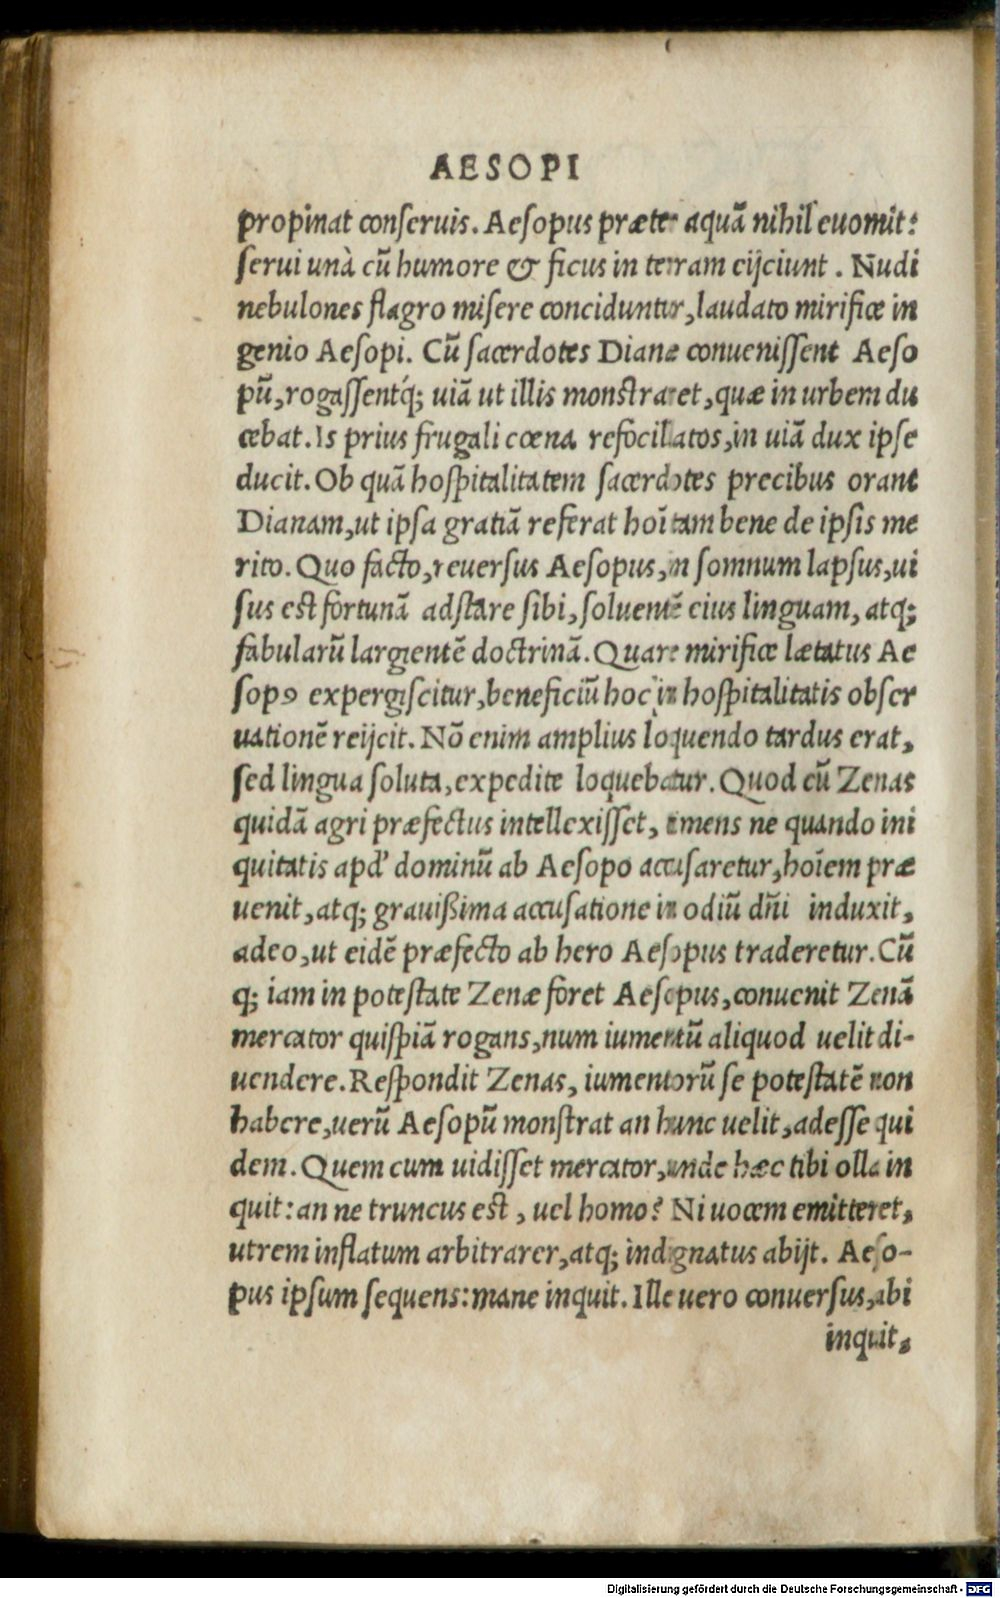 AESOPI
propinat conſeruis. Aeſopus præter aquā nihil euomit:
ſerui unà cū humore & ficus in terram eijciunt. Nudi
nebulones flagro miſere conciduntur, laudato mirifice in
genio Aeſopi. Cū ſacerdotes Dianæ conueniſſent Aeſo
pū, rogaſſentq́; uiā ut illis monſtraret, quæ in urbem du
cebat. Is prius frugali cœna refocillatos, in uiā dux ipſe
ducit. Ob quā hoſpitalitatem ſacerdotes precibus orant
Dianam, ut ipſa gratiā referat hoī tam bene de ipſis me
rito. Quo facto, reuerſus Aeſopus, in ſomnum lapſus, ui
ſus eſt fortunā adſtare ſibi, ſoluentē eius linguam, atq;
fabularū largientē doctrinā. Quare mirifice lætatus Ae
ſopꝰ expergiſcitur, beneficiū hoc in hoſpitalitatis obſer
uationē reijcit. Nō enim amplius loquendo tardus erat,
ſed lingua ſoluta, expedite loquebatur. Quod cū Zenas
quidā agri præfectus intellexiſſet, timens ne quando ini
quitatis apd' dominū ab Aeſopo accuſaretur, hoīem præ
uenit, atq; grauißima accuſatione in odiū dn̄i induxit,
adeo, ut eidē præfecto ab hero Aeſopus traderetur. Cū
q; iam in poteſtate Zenæ foret Aeſopus, conuenit Zenā
mercator quiſpiā rogans, num iumentū aliquod uelit di-
uendere. Reſpondit Zenas, iumentorū ſe poteſtatē non
habere, uerū Aeſopū monſtrat an hunc uelit, adeſſe qui
dem. Quem cum uidiſſet mercator, unde hæc tibi olla in
quit: an ne truncus eſt, uel homo? Ni uocem emitteret,
utrem inflatum arbitrarer, atq; indignatus abijt. Aeſo-
pus ipſum ſequens: mane inquit. Ille uero conuerſus, abi
inquit,
Digitalisierung gefördert durch die Deutsche Forschungsgemeinschaft - DFG